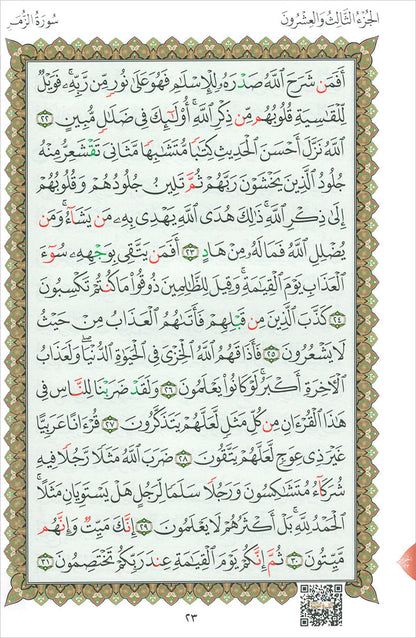 الجزء الثالث والعشرون
سورة الزمر
أَفَمَن شَرَحَ اللَّهُ صَدْرَهُ لِلْإِسْلَامِ فَهُوَ عَلَىٰ نُورٍ مِّن رَّبِّهِ ۚ فَوَيْلٌ
لِّلْقَاسِيَةِ قُلُوبُهُم مِّن ذِكْرِ اللَّهِ ۚ أُولَٰئِكَ فِي ضَلَالٍ مُّبِينٍ ٢٢
اللَّهُ نَزَّلَ أَحْسَنَ الْحَدِيثِ كِتَابًا مُّتَشَابِهًا مَّثَانِيَ تَقْشَعِرُّ مِنْهُ
جُلُودُ الَّذِينَ يَخْشَوْنَ رَبَّهُمْ ثُمَّ تَلِينُ جُلُودُهُمْ وَقُلُوبُهُمْ
إِلَىٰ ذِكْرِ اللَّهِ ۚ ذَٰلِكَ هُدَى اللَّهِ يَهْدِي بِهِ مَن يَشَاءُ ۚ وَمَن
يُضْلِلِ اللَّهُ فَمَا لَهُ مِنْ هَادٍ ٢٣ أَفَمَن يَتَّقِي بِوَجْهِهِ سُوءَ
الْعَذَابِ يَوْمَ الْقِيَامَةِ ۚ وَقِيلَ لِلظَّالِمِينَ ذُوقُوا مَا كُنتُمْ تَكْسِبُونَ
٢٤ كَذَّبَ الَّذِينَ مِن قَبْلِهِمْ فَأَتَاهُمُ الْعَذَابُ مِنْ حَيْثُ
لَا يَشْعُرُونَ ٢٥ فَأَذَاقَهُمُ اللَّهُ الْخِزْيَ فِي الْحَيَاةِ الدُّنْيَا ۖ وَلَعَذَابُ
الْآخِرَةِ أَكْبَرُ ۚ لَوْ كَانُوا يَعْلَمُونَ ٢٦ وَلَقَدْ ضَرَبْنَا لِلنَّاسِ فِي
هَٰذَا الْقُرْءَانِ مِن كُلِّ مَثَلٍ لَّعَلَّهُمْ يَتَذَكَّرُونَ ٢٧ قُرْءَانًا عَرَبِيًّا
غَيْرَ ذِي عِوَجٍ لَّعَلَّهُمْ يَتَّقُونَ ٢٨ ضَرَبَ اللَّهُ مَثَلًا رَّجُلًا فِيهِ
شُرَكَاءُ مُتَشَاكِسُونَ وَرَجُلًا سَلَمًا لِّرَجُلٍ هَلْ يَسْتَوِيَانِ مَثَلًا ۚ
الْحَمْدُ لِلَّهِ ۚ بَلْ أَكْثَرُهُمْ لَا يَعْلَمُونَ ٢٩ إِنَّكَ مَيِّتٌ وَإِنَّهُم
مَّيِّتُونَ ٣٠ ثُمَّ إِنَّكُمْ يَوْمَ الْقِيَامَةِ عِندَ رَبِّكُمْ تَخْتَصِمُونَ ٣١
٢٣